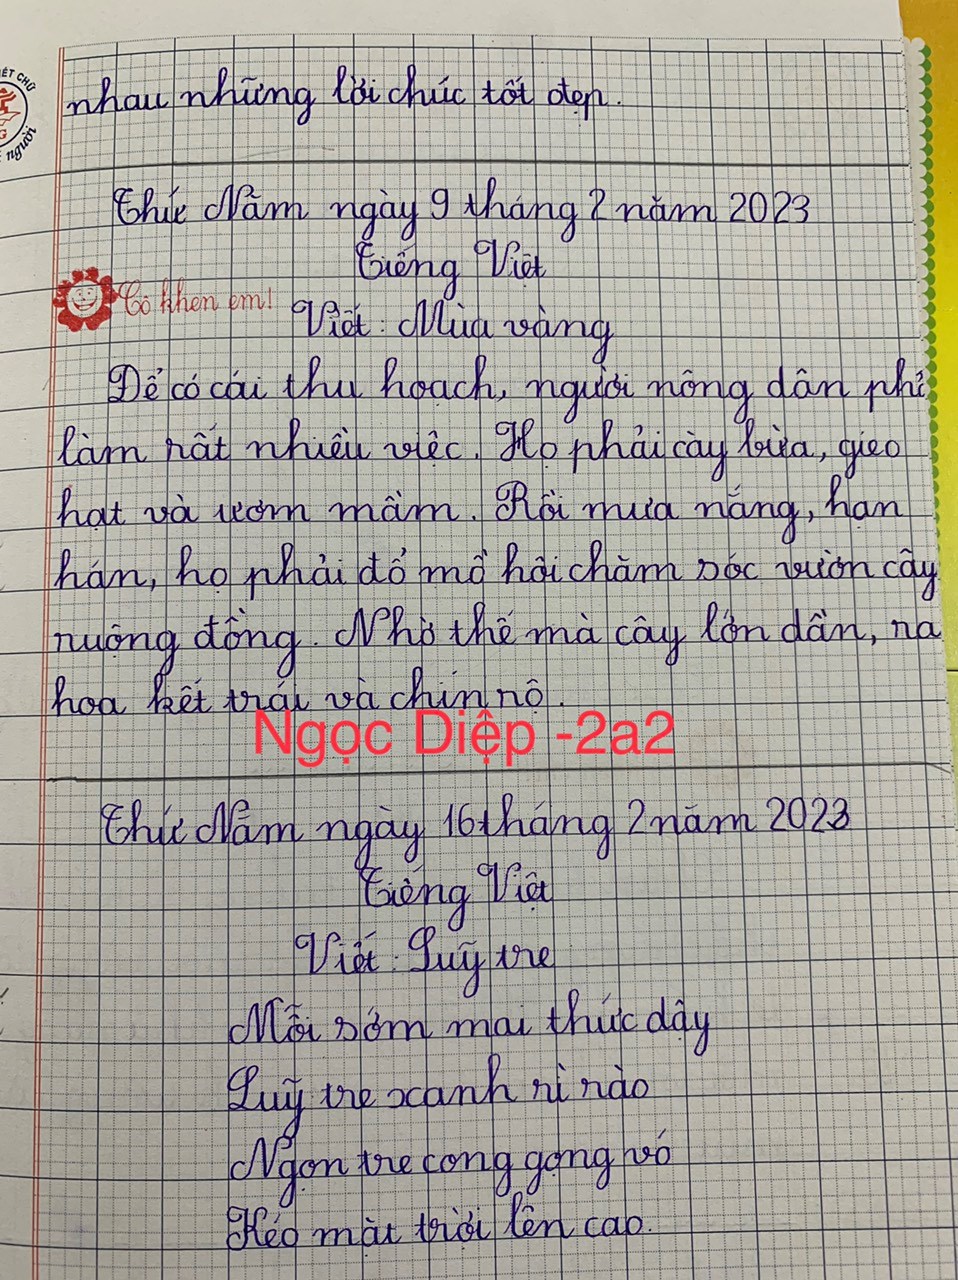 ẾT CHỮ
người
nhau những lời chúc tốt đẹp.
Thứ Năm ngày 9 tháng 2 năm 2023
Tiếng Việt
Cô khen em!
Viết: Mùa vàng
Để có cái thu hoạch, người nông dân phả
làm rất nhiều việc. Họ phải cày bừa, gieo
hạt và ươm mầm. Rồi mưa nắng, hạn
hán, họ phải đổ mồ hôi chăm sóc vườn cây
ruộng đồng. Nhờ thế mà cây lớn dần, ra
hoa kết trái và chín rộ.
Ngọc Diệp -2a2
Thứ Năm ngày 16 tháng 2 năm 2023
Tiếng Việt
Viết: Luỹ tre
Mỗi sớm mai thức dậy
Luỹ tre xanh rì rào
Ngọn tre cong gọng vó
Kéo mặt trời lên cao.